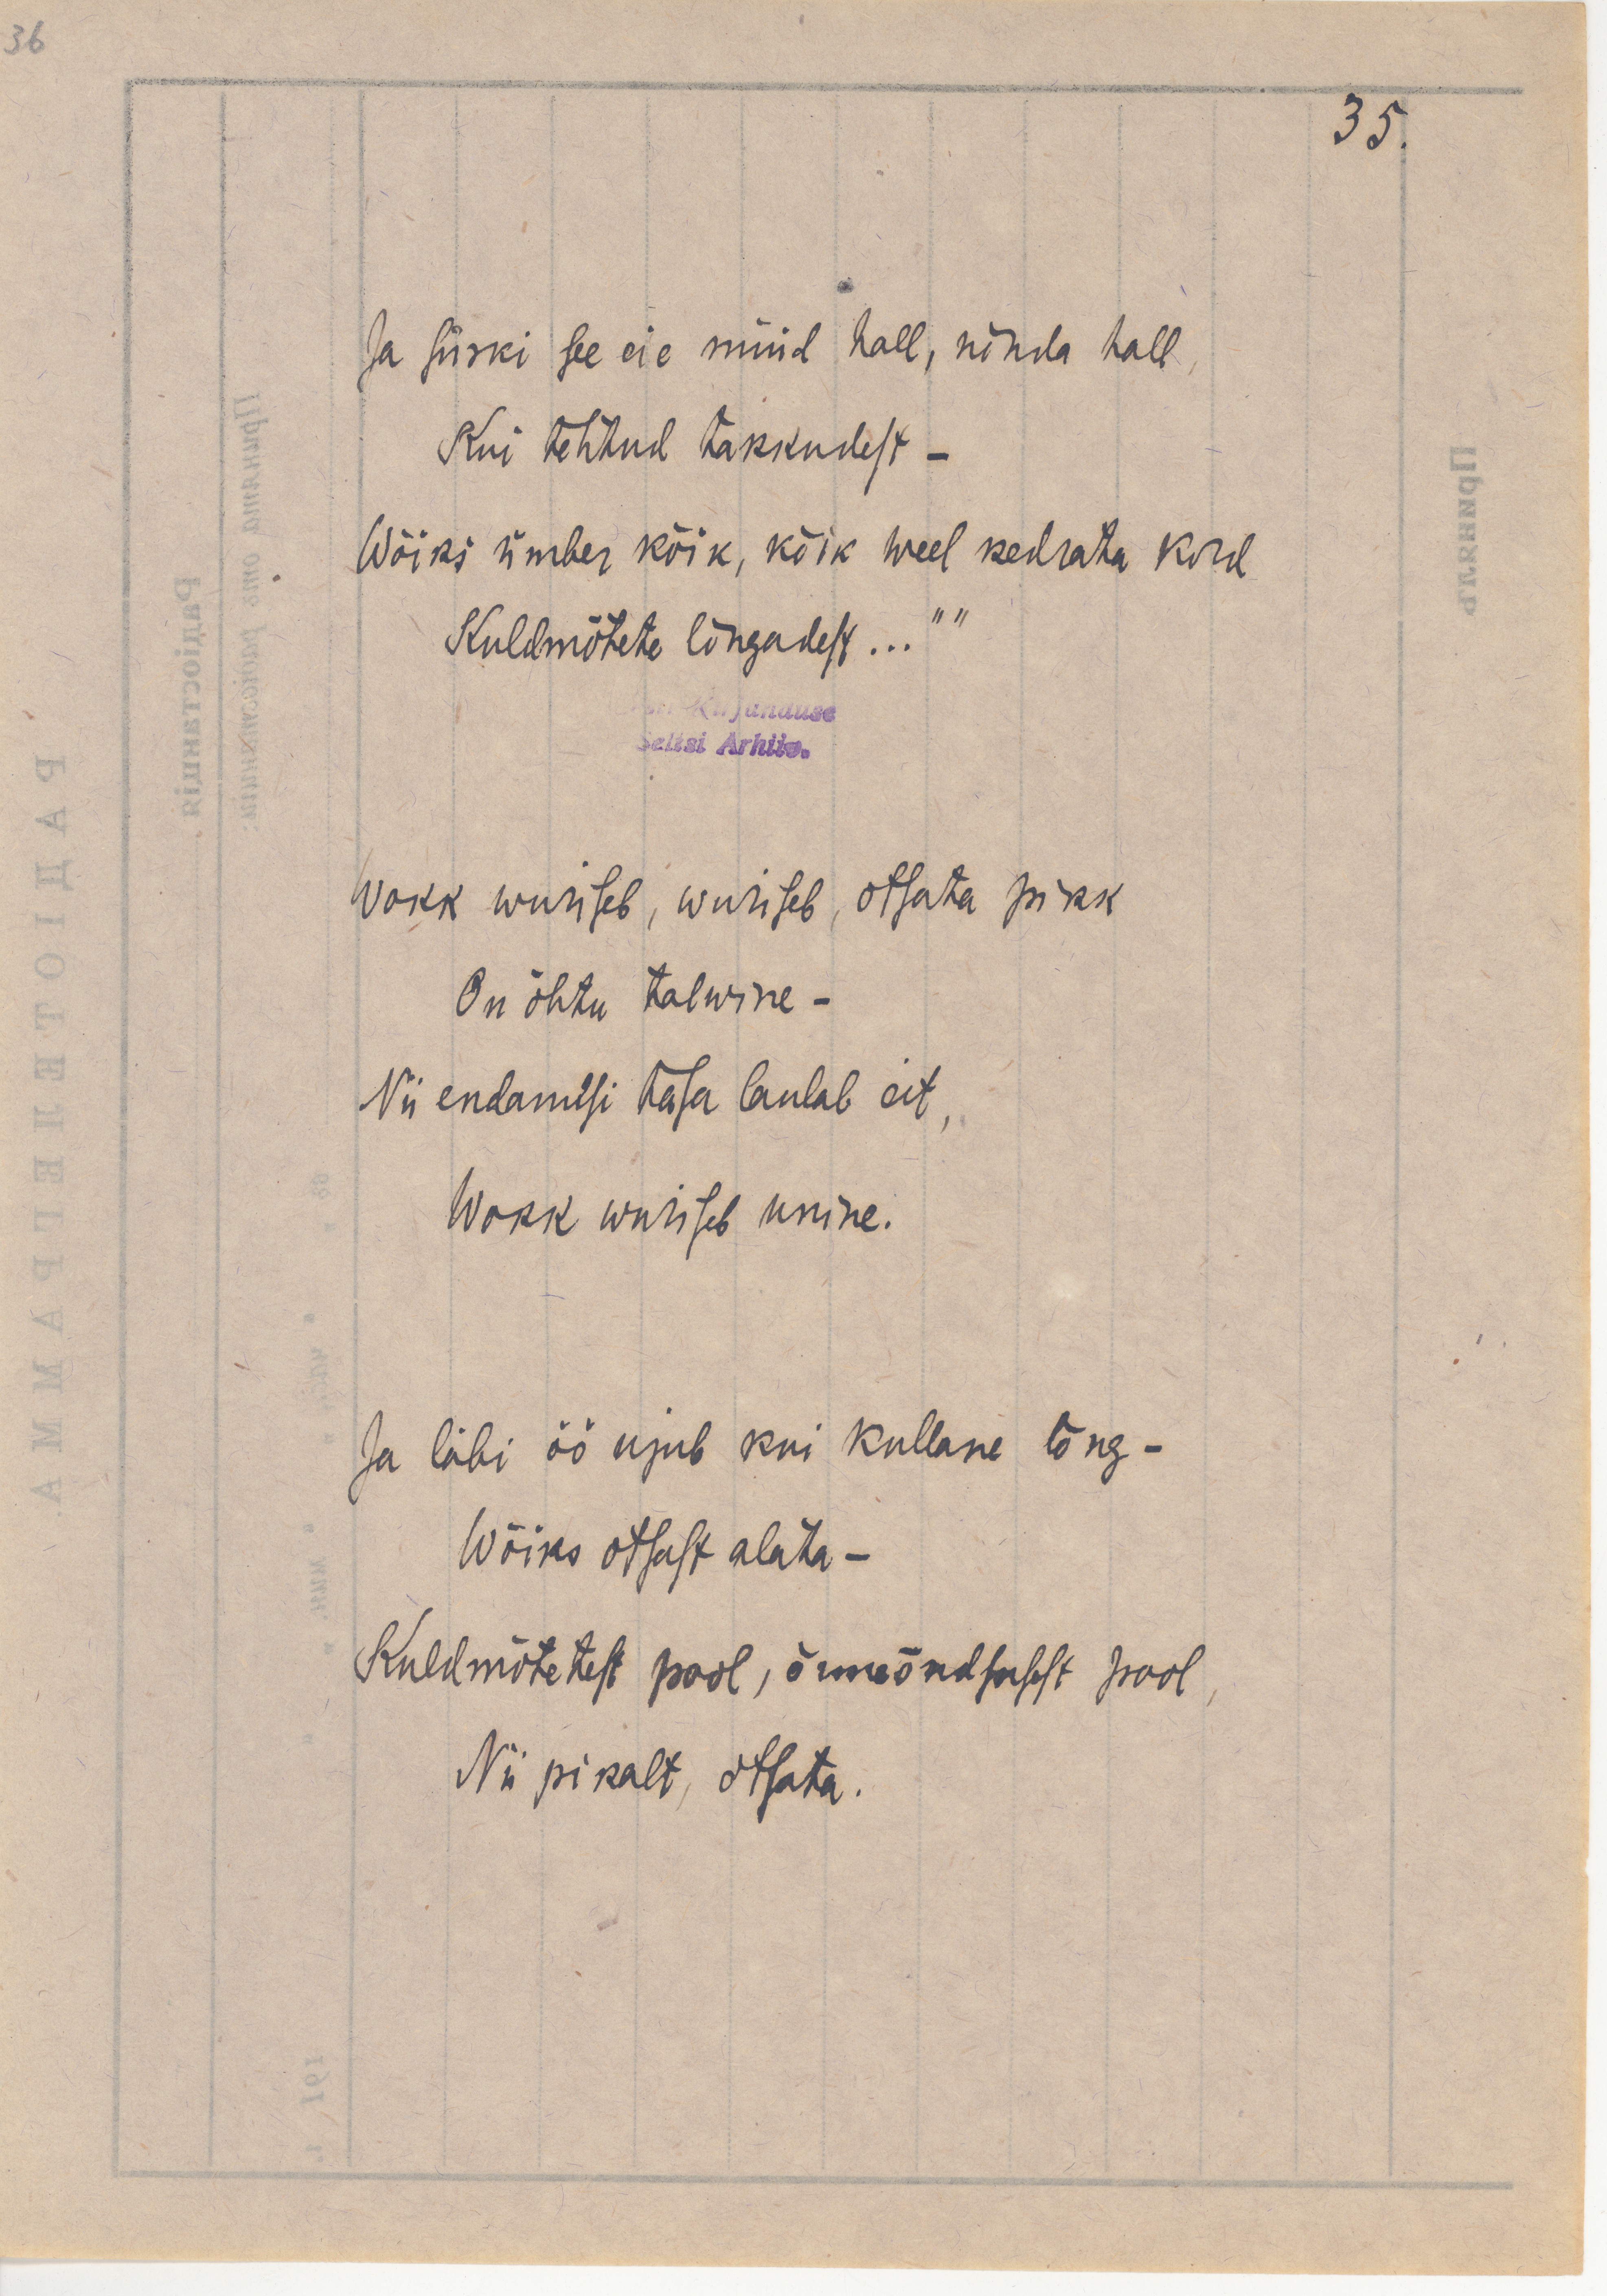 36
35.
Ja siiski see eie nüüd hall, nõnda hall,
Kui tehtud takkudest –
Wõiks ümber kõik, kõik weel kedrata kord
Kuldmõtete lõngadest... ""
Kirjanduse
Seltsi Arhiiv.
Wokk wuriseb, wuriseb, otsata pikk
On õhtu talwine –
Nii endamisi tasa laulab eit,
Wokk wuriseb unine.
Ja läbi öö ujub kui kullane lõng –
Wõiks otsast alata –
Kuldmõtetest pool, õnneõndsusest pool,
Nii pikalt, otsata.
РАДІОТЕЛЕГРАММА
Радіостанція
Принята отъ радіостанціи:
Принялъ
191